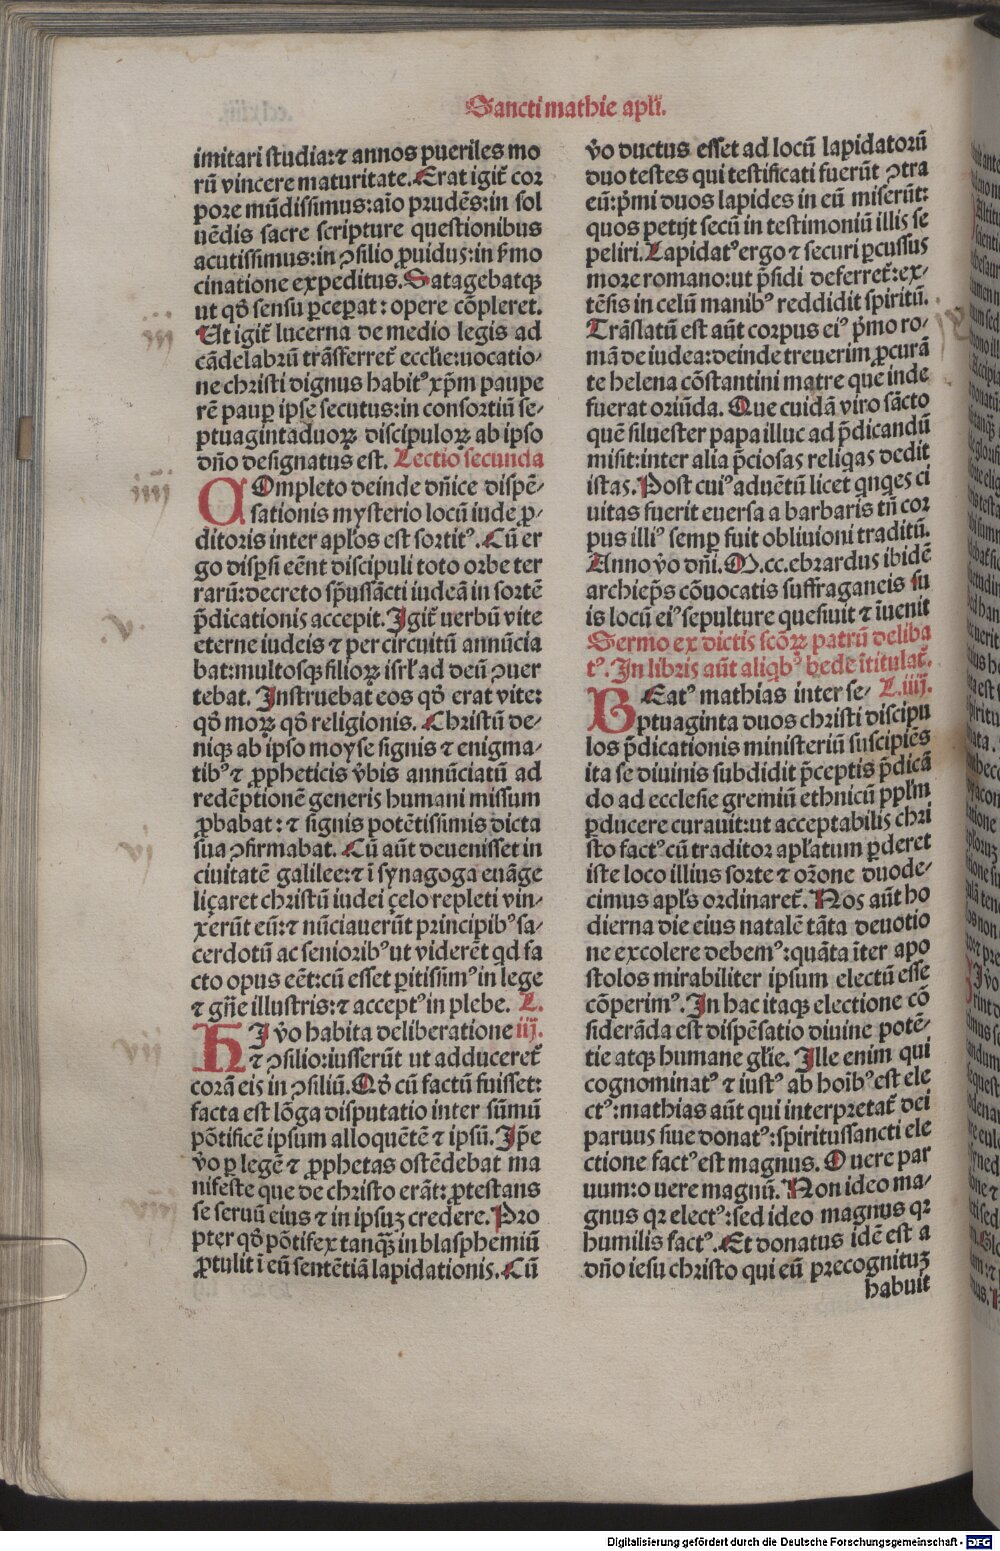 Sancti mathie apłi.
imitari studia:⁊ annos pueriles mo
rū vincere maturitate. Erat igit̄ cor
pore mūdissimus:aīo prudēs:in sol
uēdis sacre scripture questionibus
acutissimus:in ꝯsilio ꝓuidus:in ẜmo
cinatione expeditus. Satagebatqꝫ
ut qđ sensu ꝑceꝑat: opere cōpleret.
Ut igit̄ lucerna de medio legis ad
cādelabrū trāsferret̄ ecclīe:uocatio⸗
ne christi dignus habitꝰ xp̄m paupe
rē pauꝑ ipse secutus:in consortiū se⸗
ptuagintaduoꝝ discipuloꝝ ab ipso
dño designatus est. Lectio secunda
COmpleto deinde dñice dispē⸗
sationis mysterio locū iude ꝓ⸗
ditoris inter apłos est sortitꝰ. Cū er
go disꝑsi eēnt discipuli toto orbe ter
rarū:decreto sp̄ussācti iudeā in sortē
p̄dicationis accepit. Igit̄ uerbū vite
eterne iudeis ⁊ per circuitū annūcia
bat:multosqꝫ filioꝝ isrł ad deū ꝯuer
tebat. Instruebat eos qđ erat vite:
qđ moꝝ qđ religionis. Christū de⸗
niqꝫ ab ipso moyse signis ⁊ enigma⸗
tibꝰ ⁊ ꝓpheticis v̄bis annūciatū ad
redēptionē generis humani missum
ꝓbabat: ⁊ signis potētissimis dicta
sua ꝯfirmabat. Cū aūt deuenisset in
ciuitatē galilee:⁊ ī synagoga euāge
liçaret christū iudei çelo repleti vin⸗
xerūt eū:⁊ nūciauerūt principibꝰ sa⸗
cerdotū ac senioribꝰ ut viderēt qd fa
cto opus eēt:cū esset ꝑitissimꝰ in lege
⁊ gñe illustris:⁊ acceptꝰ in plebe. L.
HI v̄o habita deliberatione iij.
⁊ ꝯsilio:iusserūt ut adduceret̄
corā eis in ꝯsiliū. Qđ cū factū fuisset:
facta est lōga disputatio inter sūmū
pōtificē ipsum alloquētē ⁊ ipsū. Ip̄e
v̄o ꝑ legē ⁊ ꝓphetas ostēdebat ma
nifeste que de christo erāt: ꝓtestans
se seruū eius ⁊ in ipsuꝫ credere. Pro
pter qđ pōtifex tanqꝫ̄ in blasphemiū
ꝓtulit ī eū sentētiā lapidationis. Cū
v̄o ductus esset ad locū lapidatorū
duo testes qui testificati fuerūt ꝯtra
eū:p̄mi duos lapides in eū miserūt:
quos petijt secū in testimoniū illis se
peliri. Lapidatꝰ ergo ⁊ securi ꝑcussus
more romano:ut p̄sidi deferret̄:ex⸗
tēsis in celū manibꝰ reddidit spiritū.
Trāslatū est aūt corpus eiꝰ p̄mo ro⸗
mā de iudea:deinde treuerim ꝓcurā
te helena cōstantini matre que inde
fuerat oriūda. Que cuidā viro sācto
quē siluester papa illuc ad p̄dicandū
misit:inter alia p̄ciosas reliqas dedit
istas. Post cuiꝰ aduētū licet qnqes ci
uitas fuerit euersa a barbaris tñ cor
pus illiꝰ semꝑ fuit obliuioni traditū.
Anno v̄o dñi. M.cc.ebrardus ibidē
archiep̄s cōuocatis suffraganeis su
is locū eiꝰ sepulture quesiuit ⁊ īuenit
Sermo ex dictis scōꝝ patrū deliba
tꝰ. In libris aūt aliqbꝰ bede ītitulat̄.
BEatꝰ mathias inter se⸗ L.iiij.
ptuaginta duos christi discipu
los p̄dicationis ministeriū suscipiēs
ita se diuinis subdidit p̄ceptis p̄dicā
do ad ecclesie gremiū ethnicū pp̄łm
ꝑducere curauit:ut acceptabilis chri
sto factꝰ cū traditor apłatum ꝑderet
iste loco illius sorte ⁊ orōne duode⸗
cimus apłs ordinaret̄. Nos aūt ho
dierna die eius natalē tāta deuotio
ne excolere debemꝰ:quāta īter apo
stolos mirabiliter ipsum electū esse
cōperimꝰ. In hac itaqꝫ electione cō
siderāda est dispēsatio diuine potē⸗
tie atqꝫ humane glīe. Ille enim qui
cognominatꝰ ⁊ iustꝰ ab hoībꝰ est ele
ctꝰ:mathias aūt qui interpretat̄ dei
paruus siue donatꝰ:spiritussancti ele
ctione factꝰ est magnus. O vere par
uum:o uere magnū. Non ideo ma⸗
gnus qꝛ electꝰ:sed ideo magnus qꝛ
humilis factꝰ. Et donatus idē est a
dño iesu christo qui eū precognituꝫ
habuit
Digitalisierung gefördert durch die Deutsche Forschungsgemeinschaft - DFG